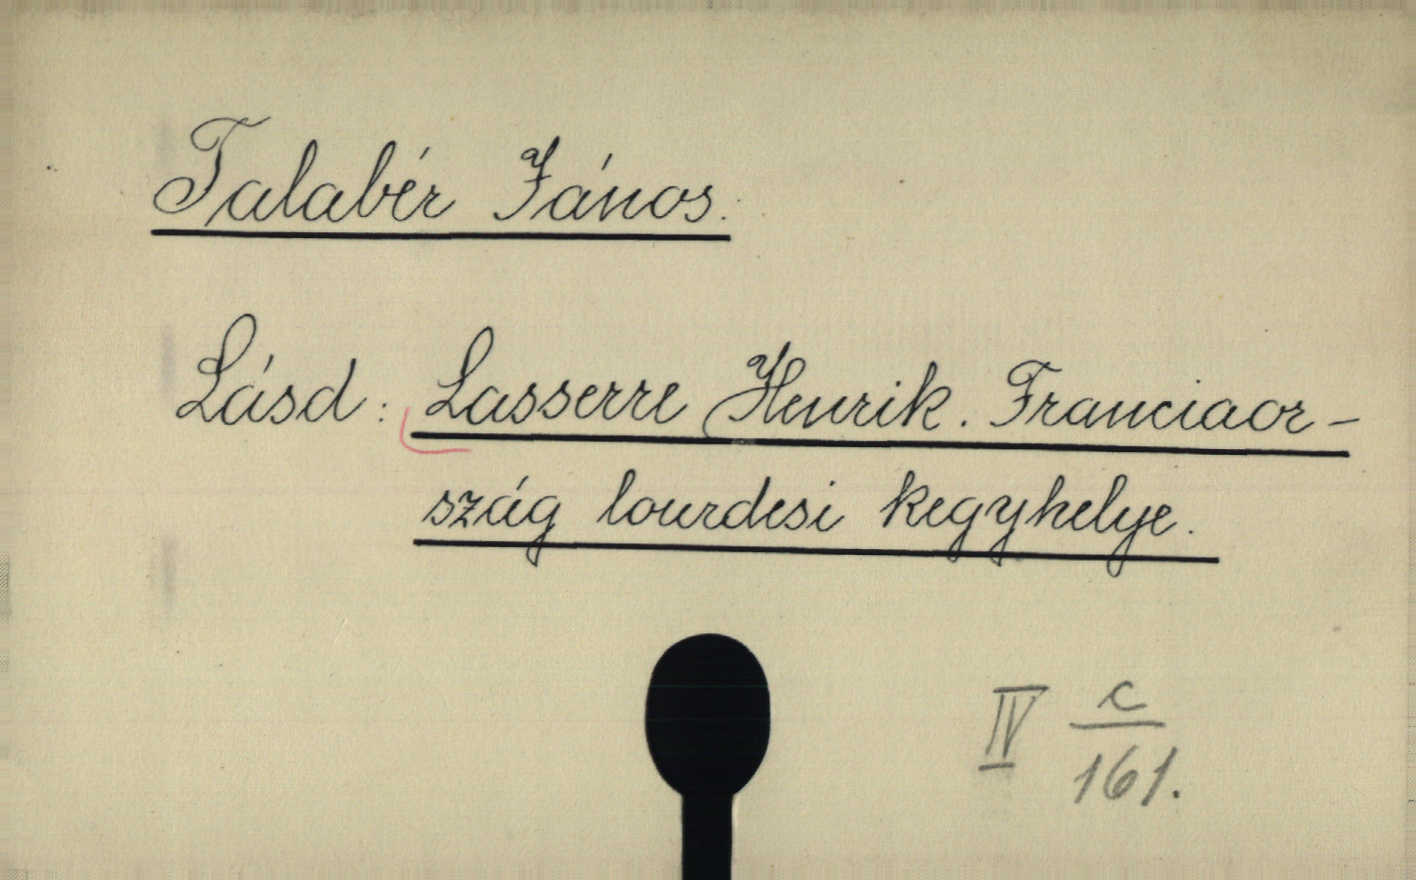 Talabér János.
Lásd: Lasserre Henrik. Franciaor-
szág lourdesi kegyhelye.
IV c
161.